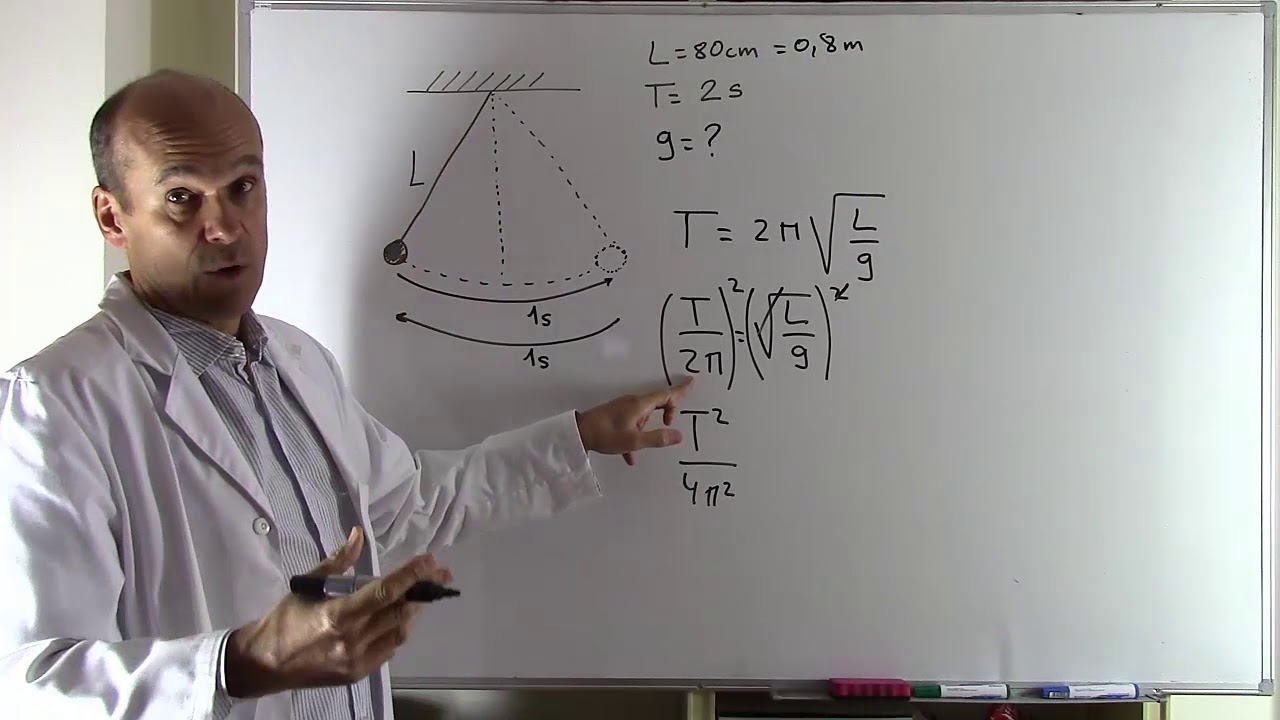 L
1s
1s
L=80cm =0,8m
T= 2s
g=?
T = 2π√(L/g)
(T/2π)² = (√(L/g))²
T²/4π²